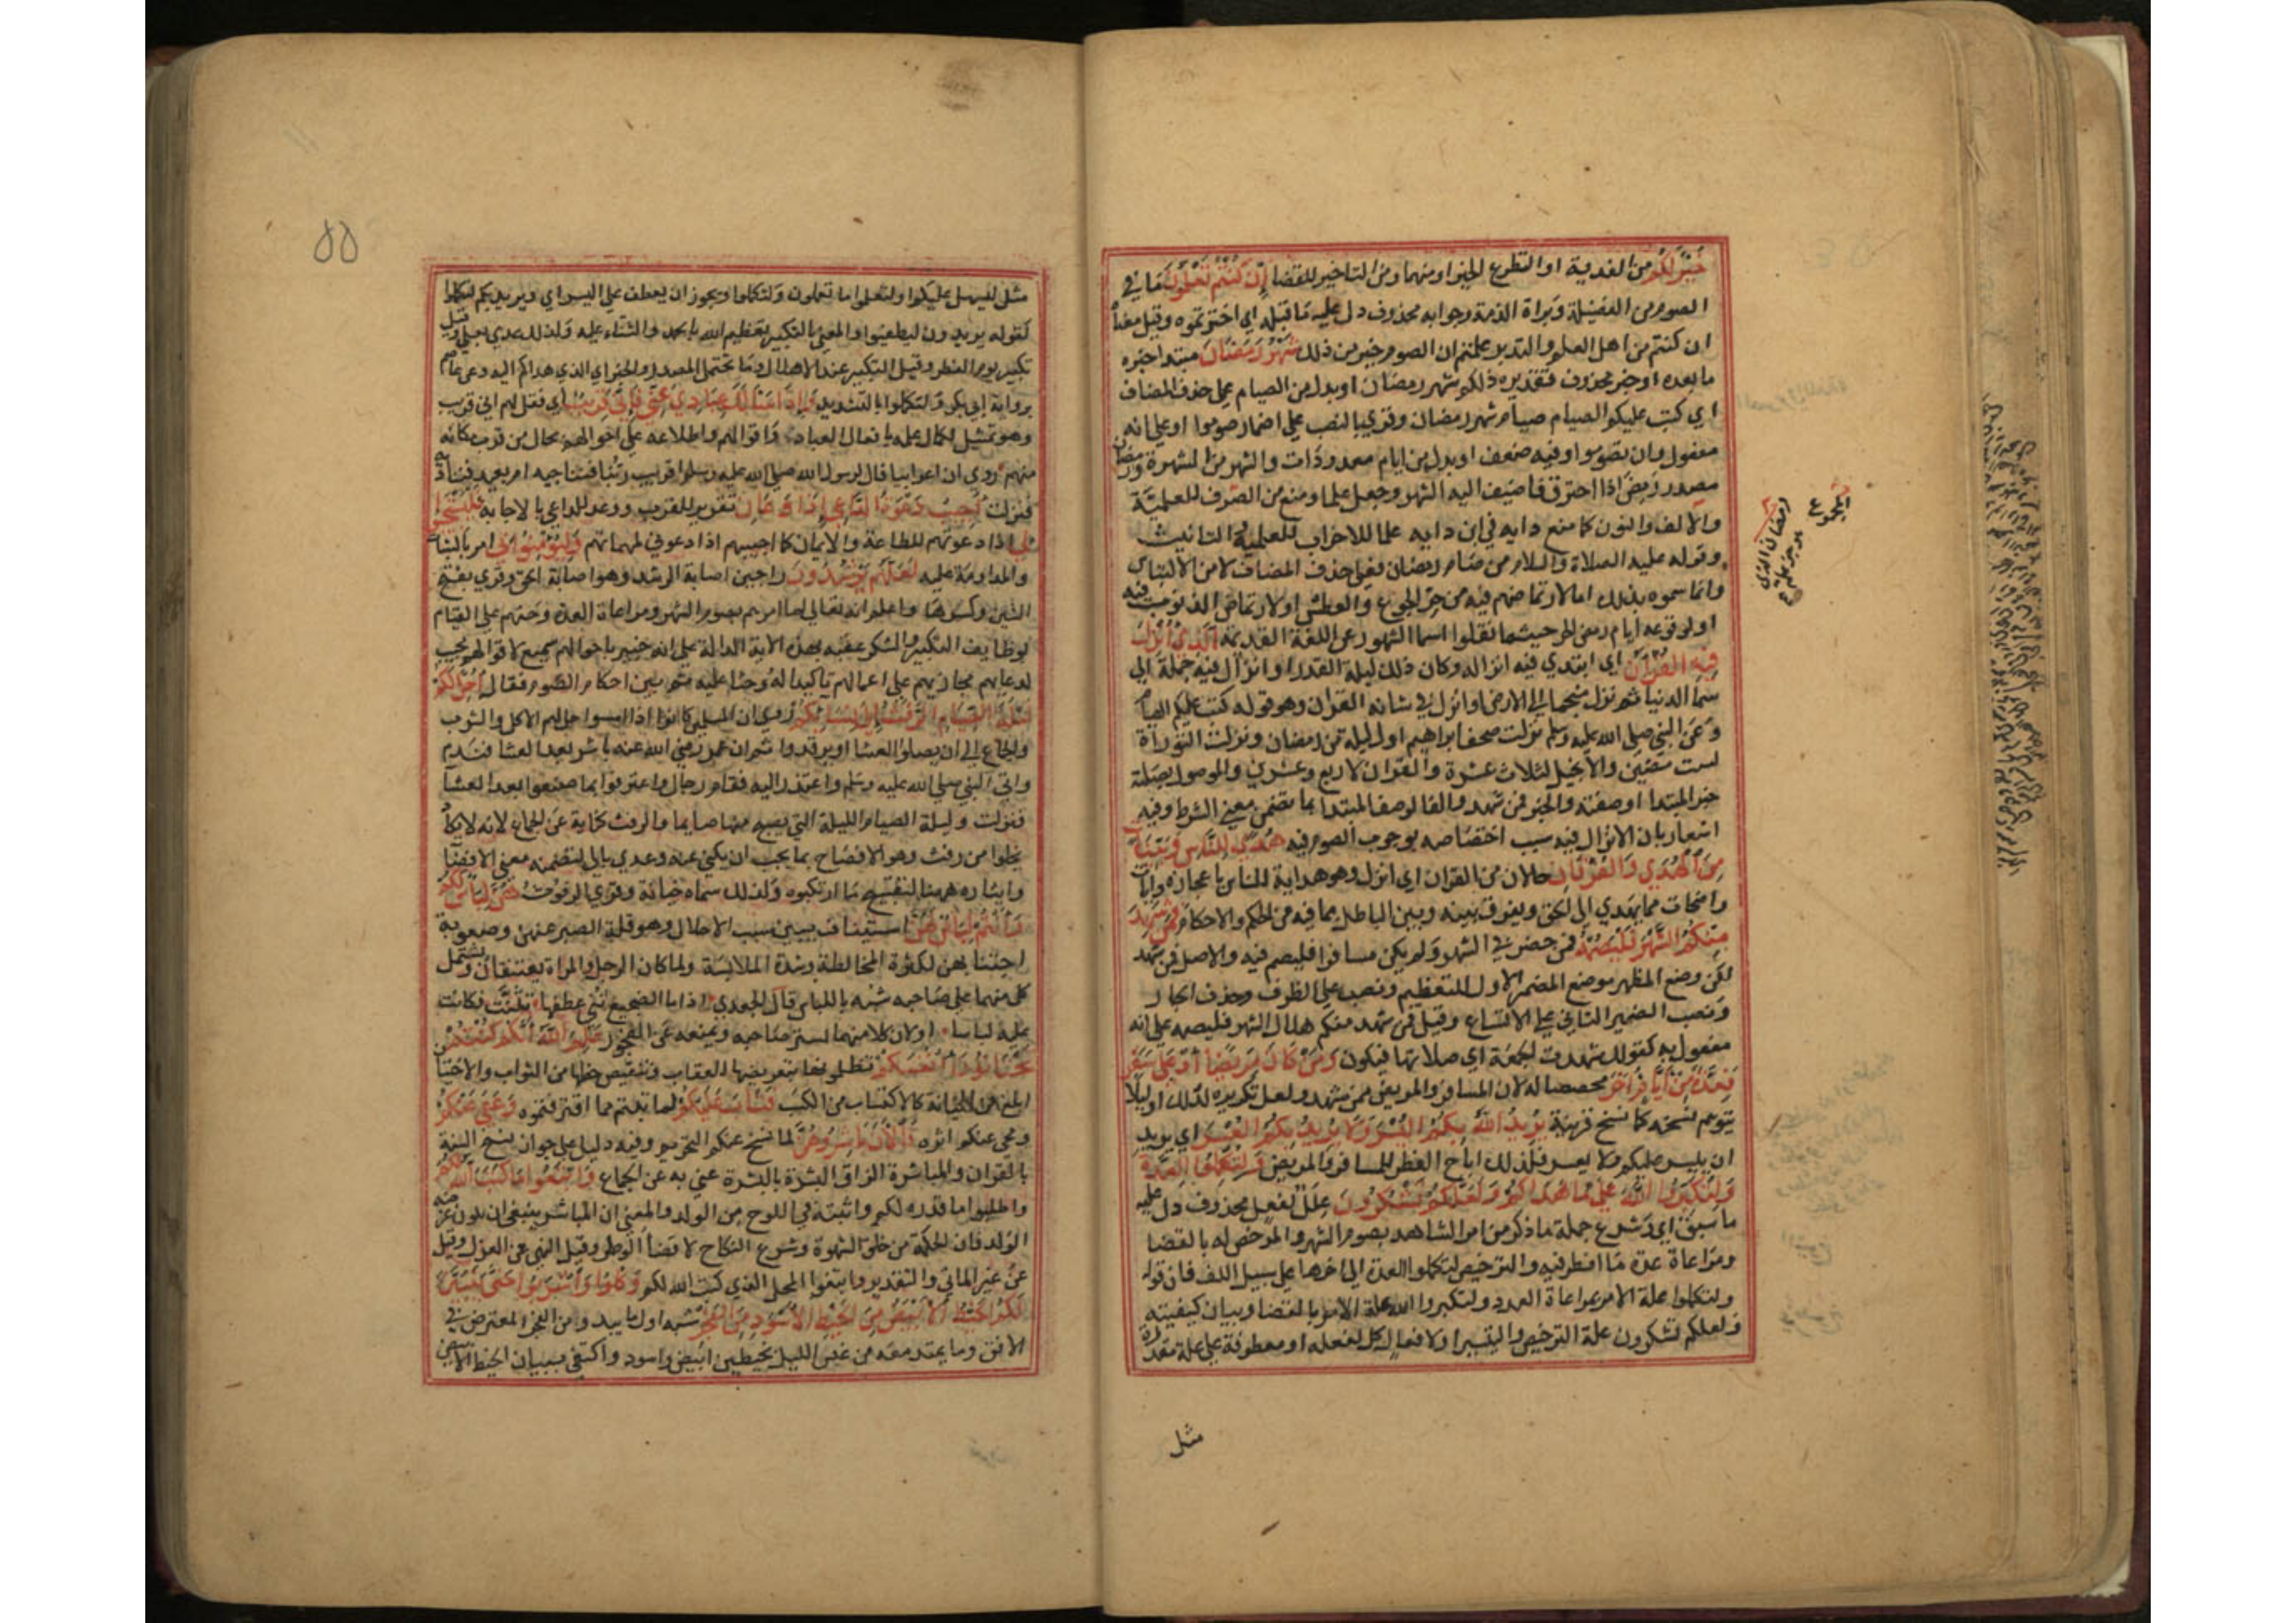 خَيْرٌ لَكُمْ من الفدية او التطوع الخير او منهما ومن التاخير للقضا إِنْ كُنْتُمْ تَعْلَمُونَ ما في
الصوم من الفضيلة وبراة الذمة وجوابه محذوف دل عليه ما قبله اي اخترتموه وقيل معناه
ان كنتم من اهل العلم والتدبر علمتم ان الصوم خير من ذلك شَهْرُ رَمَضَانَ مبتدا خبره
ما بعده او خبر محذوف فتقديره ذلكم شهر رمضان او بدل من الصيام على حذف المضاف
اي كتب عليكم الصيام صيام شهر رمضان وقري بالنصب على اضمار صوموا او على انه
مفعول وان تصوموا وفيه ضعف او بدل من ايام معدودات والشهر من الشهرة ورمضان
مصدر رمض اذا احترق فاضيف اليه الشهر وجعل علما ومنع من الصرف للعلمية
والالف والنون كما منع داية في ابن داية علما للاغراب للعلمية والتانيث
وقوله عليه الصلاة والسلام من صام رمضان فعلى حذف المضاف لامن الالتباس
وانما سموه بذلك اما لارتماضهم فيه من حر الجوع والعطش او لارتماض الذنوب فيه
او لوقوعه ايام رمض الحر حيثما نقلوا اسما الشهور عن اللغة القديمة الَّذِي أُنْزِلَ
فِيهِ الْقُرْآنُ اي ابتدي فيه انزاله وكان ذلك ليلة القدر او انزل فيه جملة الى
سما الدنيا ثم نزل منجما الى الارض او انزل في شانه القران وهو قوله كتب عليكم الصيام
وعن النبي صلى الله عليه وسلم نزلت صحف ابراهيم اول ليلة من رمضان ونزلت التوراة
لست مضين والانجيل لثلاث عشرة والقران لاربع وعشرين والموصول بصلته
خبر المبتدا او صفته والخبر فمن شهد والفا لوصف المبتدا بما تضمن معنى الشرط وفيه
اشعار بان الانزال فيه سبب اختصاصه بوجوب الصوم فيه هُدًى لِلنَّاسِ وَبَيِّنَاتٍ
مِنَ الْهُدَى وَالْفُرْقَانِ حالان من القران اي انزل وهو هداية للناس باعجازه وايات
واضحات مما يهدي الى الحق ويفرق بينه وبين الباطل بما فيه من الحكم والاحكام فَمَنْ شَهِدَ
مِنْكُمُ الشَّهْرَ فَلْيَصُمْهُ فمن حضر في الشهر ولم يكن مسافرا فليصم فيه والاصل فمن شهد
لكن وضع المظهر موضع المضمر الاول للتعظيم ونصب على الظرف وحذف الجار
ونصب الضمير الثاني على الاتساع وقيل فمن شهد منكم هلال الشهر فليصمه على انه
مفعول به كقولك شهدت الجمعة اي صلاتها فيكون وَمَنْ كَانَ مَرِيضًا أَوْ عَلَى سَفَرٍ
فَعِدَّةٌ مِنْ أَيَّامٍ أُخَرَ مخصصا له لان المسافر والمريض ممن شهد ولعل تكريره لذلك او ليلا
يتوهم نسخه كما نسخ قرينه يُرِيدُ اللَّهُ بِكُمُ الْيُسْرَ وَلَا يُرِيدُ بِكُمُ الْعُسْرَ اي يريد
ان ييسر عليكم ولا يعسر فلذلك اباح الفطر للمسافر والمريض وَلِتُكْمِلُوا الْعِدَّةَ
وَلِتُكَبِّرُوا اللَّهَ عَلَى مَا هَدَاكُمْ وَلَعَلَّكُمْ تَشْكُرُونَ علل لفعل محذوف دل عليه
ما سبق اي وشرع جملة ما ذكر من امر الشاهد بصوم الشهر والمرخص له بالقضا
ومراعاة عدة ما افطر فيه والترخيص لتكملوا العدة الى اخرها على سبيل اللف فان قوله
ولتكملوا علة الامر بمراعاة العدد ولتكبروا الله علة الامر بالقضا وبيان كيفيته
ولعلكم تشكرون علة الترخيص والتيسير او لافعال كل لفعله او معطوفة على علة مقدرة
مثل
مثل ليسهل عليكم او لتعلموا ما تعملون ولتكملوا ويجوز ان يعطف على اليسر اي ويريد بكم لتكملوا
كقوله يريدون ليطفئوا والمعنى بالتكبير تعظيم الله بالحمد والثناء عليه ولذلك عدي بعلى وقيل
تكبير يوم الفطر وقيل التكبير عند الاهلال وما يحتمل المصدر والخبر اي الذي هداكم اليه وعن عاصم
برواية ابي بكر ولتكملوا بالتشديد وَإِذَا سَأَلَكَ عِبَادِي عَنِّي فَإِنِّي قَرِيبٌ اي فقل لهم اني قريب
وهو تمثيل لكمال علمه بافعال العباد واقوالهم واطلاعه على احوالهم بحال من قرب مكانه
منهم روي ان اعرابيا قال لرسول الله صلى الله عليه وسلم اقريب ربنا فنناجيه ام بعيد فنناديه
فنزلت أُجِيبُ دَعْوَةَ الدَّاعِ إِذَا دَعَانِ تقرير للقرب ووعد للداعي بالاجابة فَلْيَسْتَجِيبُوا
لِي اذا دعوتهم للطاعة والايمان كما اجيبهم اذا دعوني لمهماتهم وَلْيُؤْمِنُوا بِي امر بالثبات
والمداومة عليه لَعَلَّهُمْ يَرْشُدُونَ راجين اصابة الرشد وهو اصابة الحق وقري بفتح
الشين وكسرها واعلم انه تعالى لما امرهم بصوم الشهر ومراعاة العدة وحثهم على القيام
بوظايف التكبير والشكر عقبه بهذه الاية الدالة على انه خبير باحوالهم سميع لاقوالهم مجيب
لدعايهم مجازيهم على اعمالهم تاكيدا له وحثا عليه ثم بين احكام الصوم فقال أُحِلَّ لَكُمْ
لَيْلَةَ الصِّيَامِ الرَّفَثُ إِلَى نِسَائِكُمْ روي ان المسلمين كانوا اذا امسوا حل لهم الاكل والشرب
والجماع الى ان يصلوا العشا او يرقدوا ثم ان عمر رضي الله عنه باشر بعد العشا فندم
واتى النبي صلى الله عليه وسلم واعتذر اليه فقام رجال واعترفوا بما صنعوا بعد العشا
فنزلت وليلة الصيام الليلة التي يصبح منها صايما والرفث كناية عن الجماع لانه لا يكاد
يخلوا من رفث وهو الافصاح بما يجب ان يكنى عنه وعدي بالى لتضمنه معنى الافضا
وايثاره ههنا لتقبيح ما ارتكبوه ولذلك سماه خيانة وقري الرفوث هُنَّ لِبَاسٌ لَكُمْ
وَأَنْتُمْ لِبَاسٌ لَهُنَّ استيناف يبين سبب الاحلال وهو قلة الصبر عنهن وصعوبة
اجتنابهن لكثرة المخالطة وشدة الملابسة ولما كان الرجل والمراة يعتنقان ويشتمل
كل منهما على صاحبه شبه باللباس قال الجعدي اذا ما الضجيع ثنى عطفها تثنت فكانت
عليه لباسا او لان كلا منهما لستر صاحبه ويمنعه عن الفجور عَلِمَ اللَّهُ أَنَّكُمْ كُنْتُمْ
تَخْتَانُونَ أَنْفُسَكُمْ تظلمونها بتعريضها للعقاب وتنقيص حظها من الثواب والاختيان
ابلغ من الخيانة كالاكتساب من الكسب فَتَابَ عَلَيْكُمْ لما تبتم مما اقترفتموه وَعَفَا عَنْكُمْ
ومحى عنكم اثره فَالْآنَ بَاشِرُوهُنَّ لما نسخ عنكم التحريم وفيه دليل على جواز نسخ السنة
بالقران والمباشرة الزاق البشرة بالبشرة عني به عن الجماع وَابْتَغُوا مَا كَتَبَ اللَّهُ لَكُمْ
واطلبوا ما قدره لكم واثبته في اللوح من الولد والمعنى ان المباشر ينبغي ان يكون غرضه
الولد فان الحكمة من خلق الشهوة وشرع النكاح لا قضا الوطر وقيل النهي عن العزل وقيل
عن غير الماتي والتقدير وابتغوا المحل الذي كتب الله لكم وَكُلُوا وَاشْرَبُوا حَتَّى يَتَبَيَّنَ
لَكُمُ الْخَيْطُ الْأَبْيَضُ مِنَ الْخَيْطِ الْأَسْوَدِ مِنَ الْفَجْرِ شبه اول ما يبدو من الفجر المعترض في
الافق وما يمتد معه من غبش الليل بخيطين ابيض واسود واكتفي ببيان الخيط الابيض